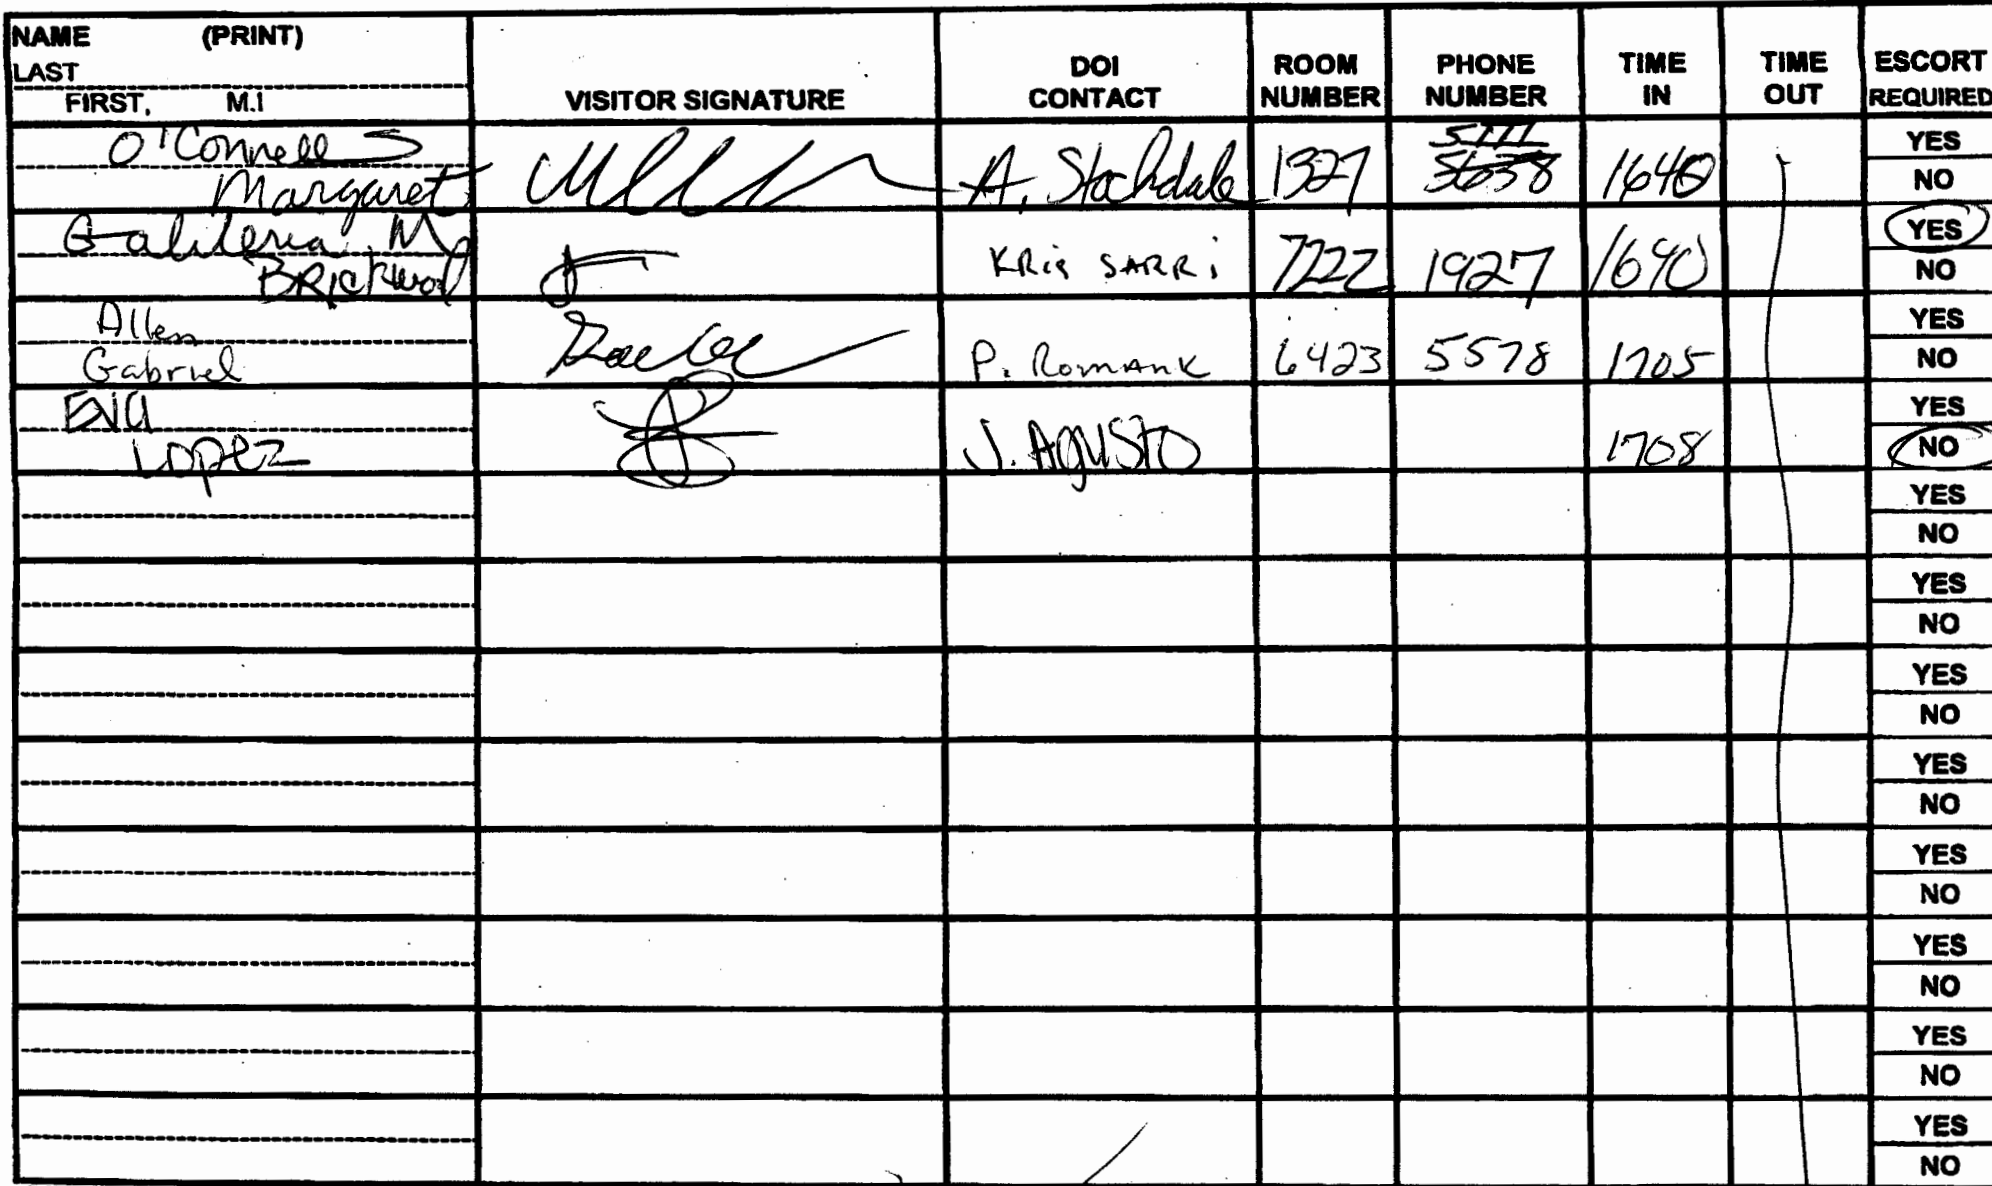 NAME (PRINT)
LAST
FIRST, M.I
VISITOR SIGNATURE
DOI CONTACT
ROOM NUMBER
PHONE NUMBER
TIME IN
TIME OUT
ESCORT REQUIRED
O'Connell S
Margaret
A. Stockdale 1327 5111 5638 1640 YES
NO
M
KRis SARRi 7222 1927 1640 YES
NO
Allen
Gabriel
P. Romank 6423 5578 1705 YES
NO
EVA
Lopez
J. Agusto 1708 YES
NO
YES
NO
YES
NO
YES
NO
YES
NO
YES
NO
YES
NO
YES
NO
YES
NO